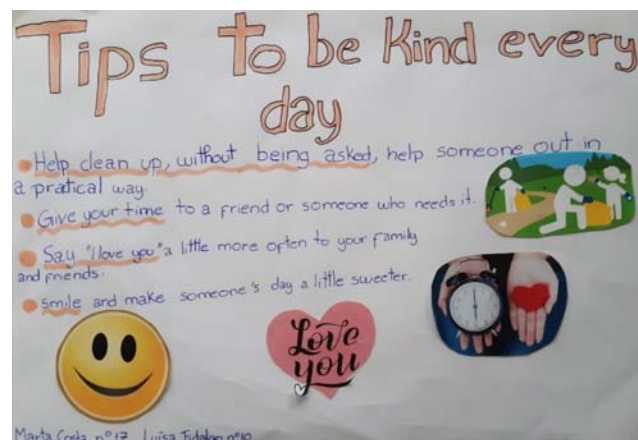 Tips to be Kind every
day
Help clean up, without being asked, help someone out in
a pratical way.
Give your time to a friend or someone who needs it.
Say "I love you" a little more often to your family
and friends.
smile and make someone's day a little sweeter.
Love
you
Marta Costa nº17 Luísa Fidalgo nº10